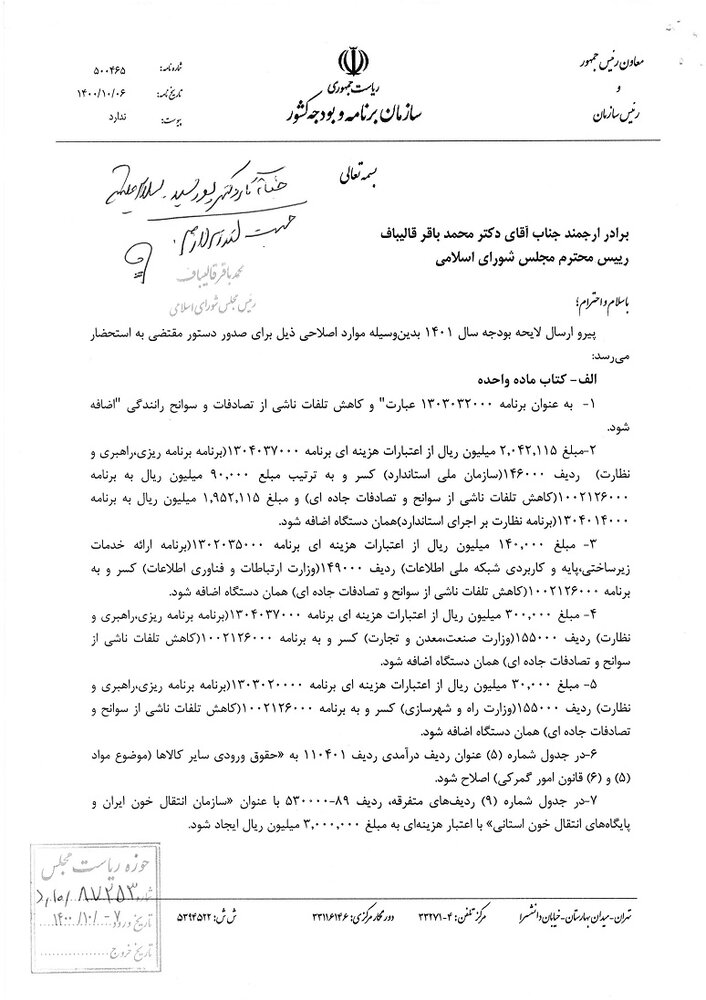 معاون رئیس جمهور
و
رئیس سازمان
ریاست جمهوری
سازمان برنامه و بودجه کشور
شماره نامه: ۵۰۰۴۶۵
تاریخ نامه: ۱۴۰۰/۱۰/۰۶
پیوست: ندارد
بسمه تعالی
جناب آقای دکتر پورسید
جهت اقدام لازم
محمد باقر قالیباف
رئیس مجلس شورای اسلامی
برادر ارجمند جناب آقای دکتر محمد باقر قالیباف
رییس محترم مجلس شورای اسلامی
باسلام و احترام؛
پیرو ارسال لایحه بودجه سال ۱۴۰۱ بدین‌وسیله موارد اصلاحی ذیل برای صدور دستور مقتضی به استحضار
می‌رسد:
الف- کتاب ماده واحده
۱- به عنوان برنامه ۱۳۰۳۰۳۲۰۰۰ عبارت" و کاهش تلفات ناشی از تصادفات و سوانح رانندگی "اضافه
شود.
۲-مبلغ ۲,۰۴۲,۱۱۵ میلیون ریال از اعتبارات هزینه ای برنامه ۱۳۰۴۰۳۷۰۰۰(برنامه برنامه ریزی،راهبری و
نظارت) ردیف ۱۴۶۰۰۰(سازمان ملی استاندارد) کسر و به ترتیب مبلغ ۹۰,۰۰۰ میلیون ریال به برنامه
۱۰۰۲۱۲۶۰۰۰(کاهش تلفات ناشی از سوانح و تصادفات جاده ای) و مبلغ ۱,۹۵۲,۱۱۵ میلیون ریال به برنامه
۱۳۰۴۰۱۴۰۰۰(برنامه نظارت بر اجرای استاندارد)همان دستگاه اضافه شود.
۳- مبلغ ۱۴۰,۰۰۰ میلیون ریال از اعتبارات هزینه ای برنامه ۱۳۰۲۰۳۵۰۰۰(برنامه ارائه خدمات
زیرساختی،پایه و کاربردی شبکه ملی اطلاعات) ردیف ۱۴۹۰۰۰(وزارت ارتباطات و فناوری اطلاعات) کسر و به
برنامه ۱۰۰۲۱۲۶۰۰۰(کاهش تلفات ناشی از سوانح و تصادفات جاده ای) همان دستگاه اضافه شود.
۴- مبلغ ۳۰۰,۰۰۰ میلیون ریال از اعتبارات هزینه ای برنامه ۱۳۰۴۰۳۷۰۰۰(برنامه برنامه ریزی،راهبری و
نظارت) ردیف ۱۵۵۰۰۰(وزارت صنعت،معدن و تجارت) کسر و به برنامه ۱۰۰۲۱۲۶۰۰۰(کاهش تلفات ناشی از
سوانح و تصادفات جاده ای) همان دستگاه اضافه شود.
۵- مبلغ ۳۰,۰۰۰ میلیون ریال از اعتبارات هزینه ای برنامه ۱۳۰۳۰۲۰۰۰۰(برنامه برنامه ریزی،راهبری و
نظارت) ردیف ۱۵۵۰۰۰(وزارت راه و شهرسازی) کسر و به برنامه ۱۰۰۲۱۲۶۰۰۰(کاهش تلفات ناشی از سوانح و
تصادفات جاده ای) همان دستگاه اضافه شود.
۶-در جدول شماره (۵) عنوان ردیف درآمدی ردیف ۱۱۰۴۰۱ به «حقوق ورودی سایر کالاها (موضوع مواد
(۵) و (۶) قانون امور گمرکی) اصلاح شود.
۷-در جدول شماره (۹) ردیف‌های متفرقه، ردیف ۸۹-۵۳۰۰۰۰ با عنوان «سازمان انتقال خون ایران و
پایگاه‌های انتقال خون استانی» با اعتبار هزینه‌ای به مبلغ ۳,۰۰۰,۰۰۰ میلیون ریال ایجاد شود.
حوزه ریاست مجلس
شماره ۸۷۲۵۳
تاریخ ورود ۱۴۰۰/۱۰/۰۷
تاریخ خروج
تهران-میدان بهارستان-خیابان دانشسرا
مرکز تلفن: ۴-۳۳۲۷۱
دورنگار مرکزی: ۳۳۱۱۶۱۴۶
ش ش: ۵۳۹۴۵۲۲